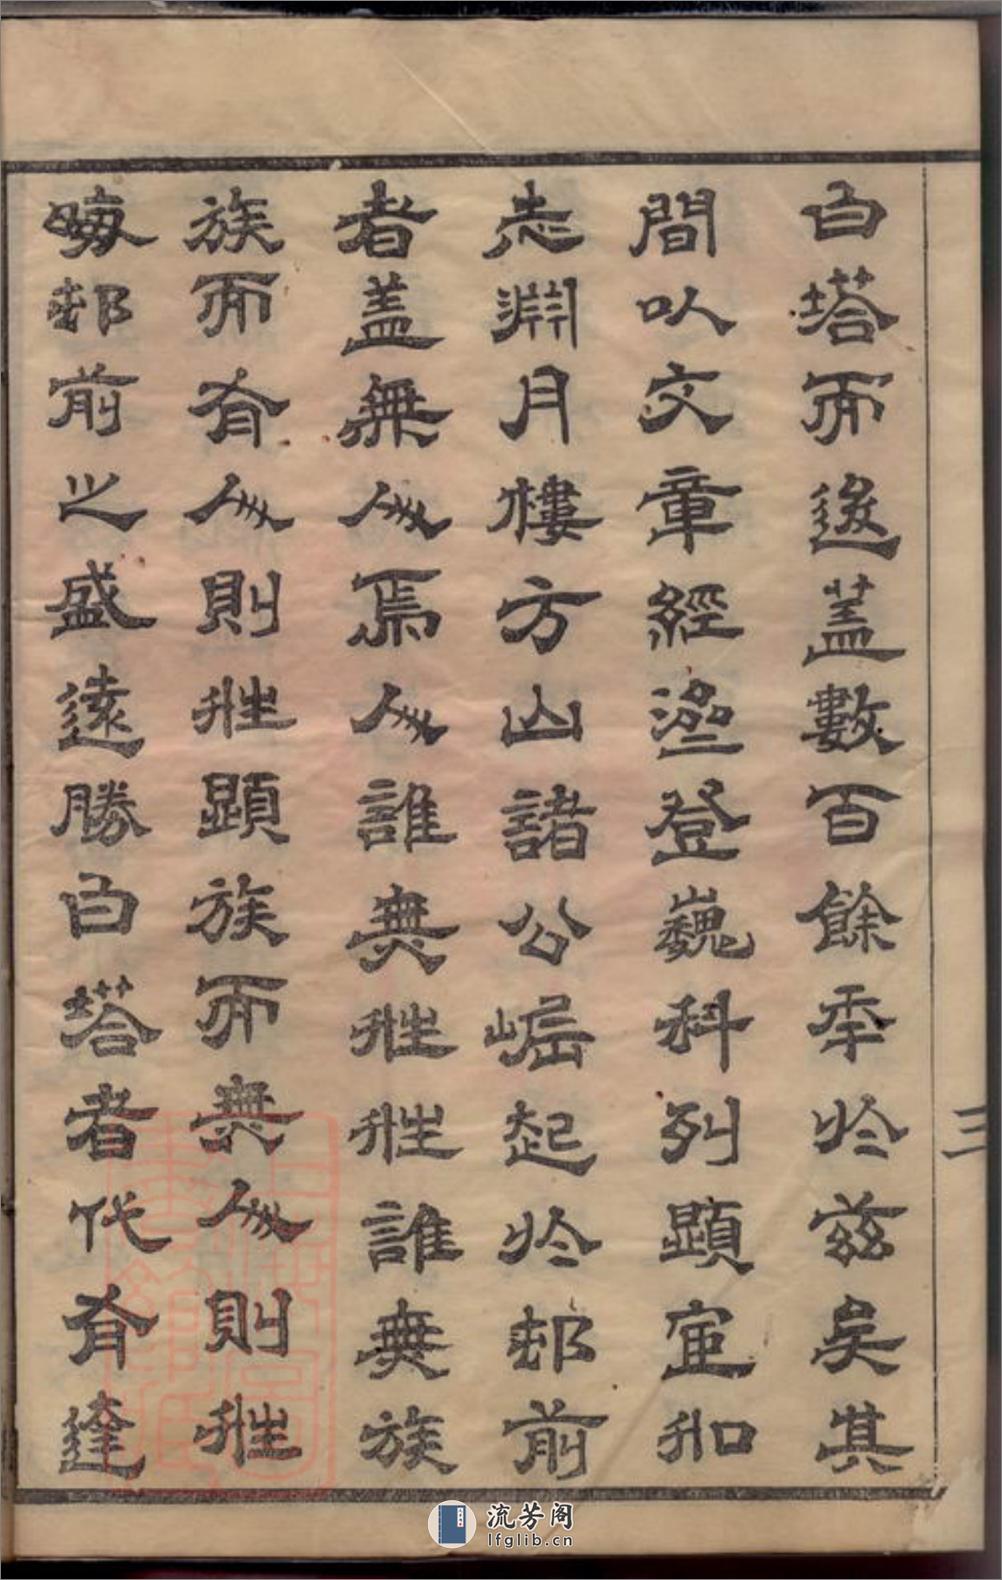 白塔而遂蓋數百餘年於茲矣其
間以文章經濟登巍科列顯宦如
志淵月樓方山諸公崛起於邨前
者盖無人焉人誰無姓姓誰無族
族而有人則姓顯族而無人則姓
晦邨前之盛遠勝白塔者代有達
三
流芳阁
lfglib.cn